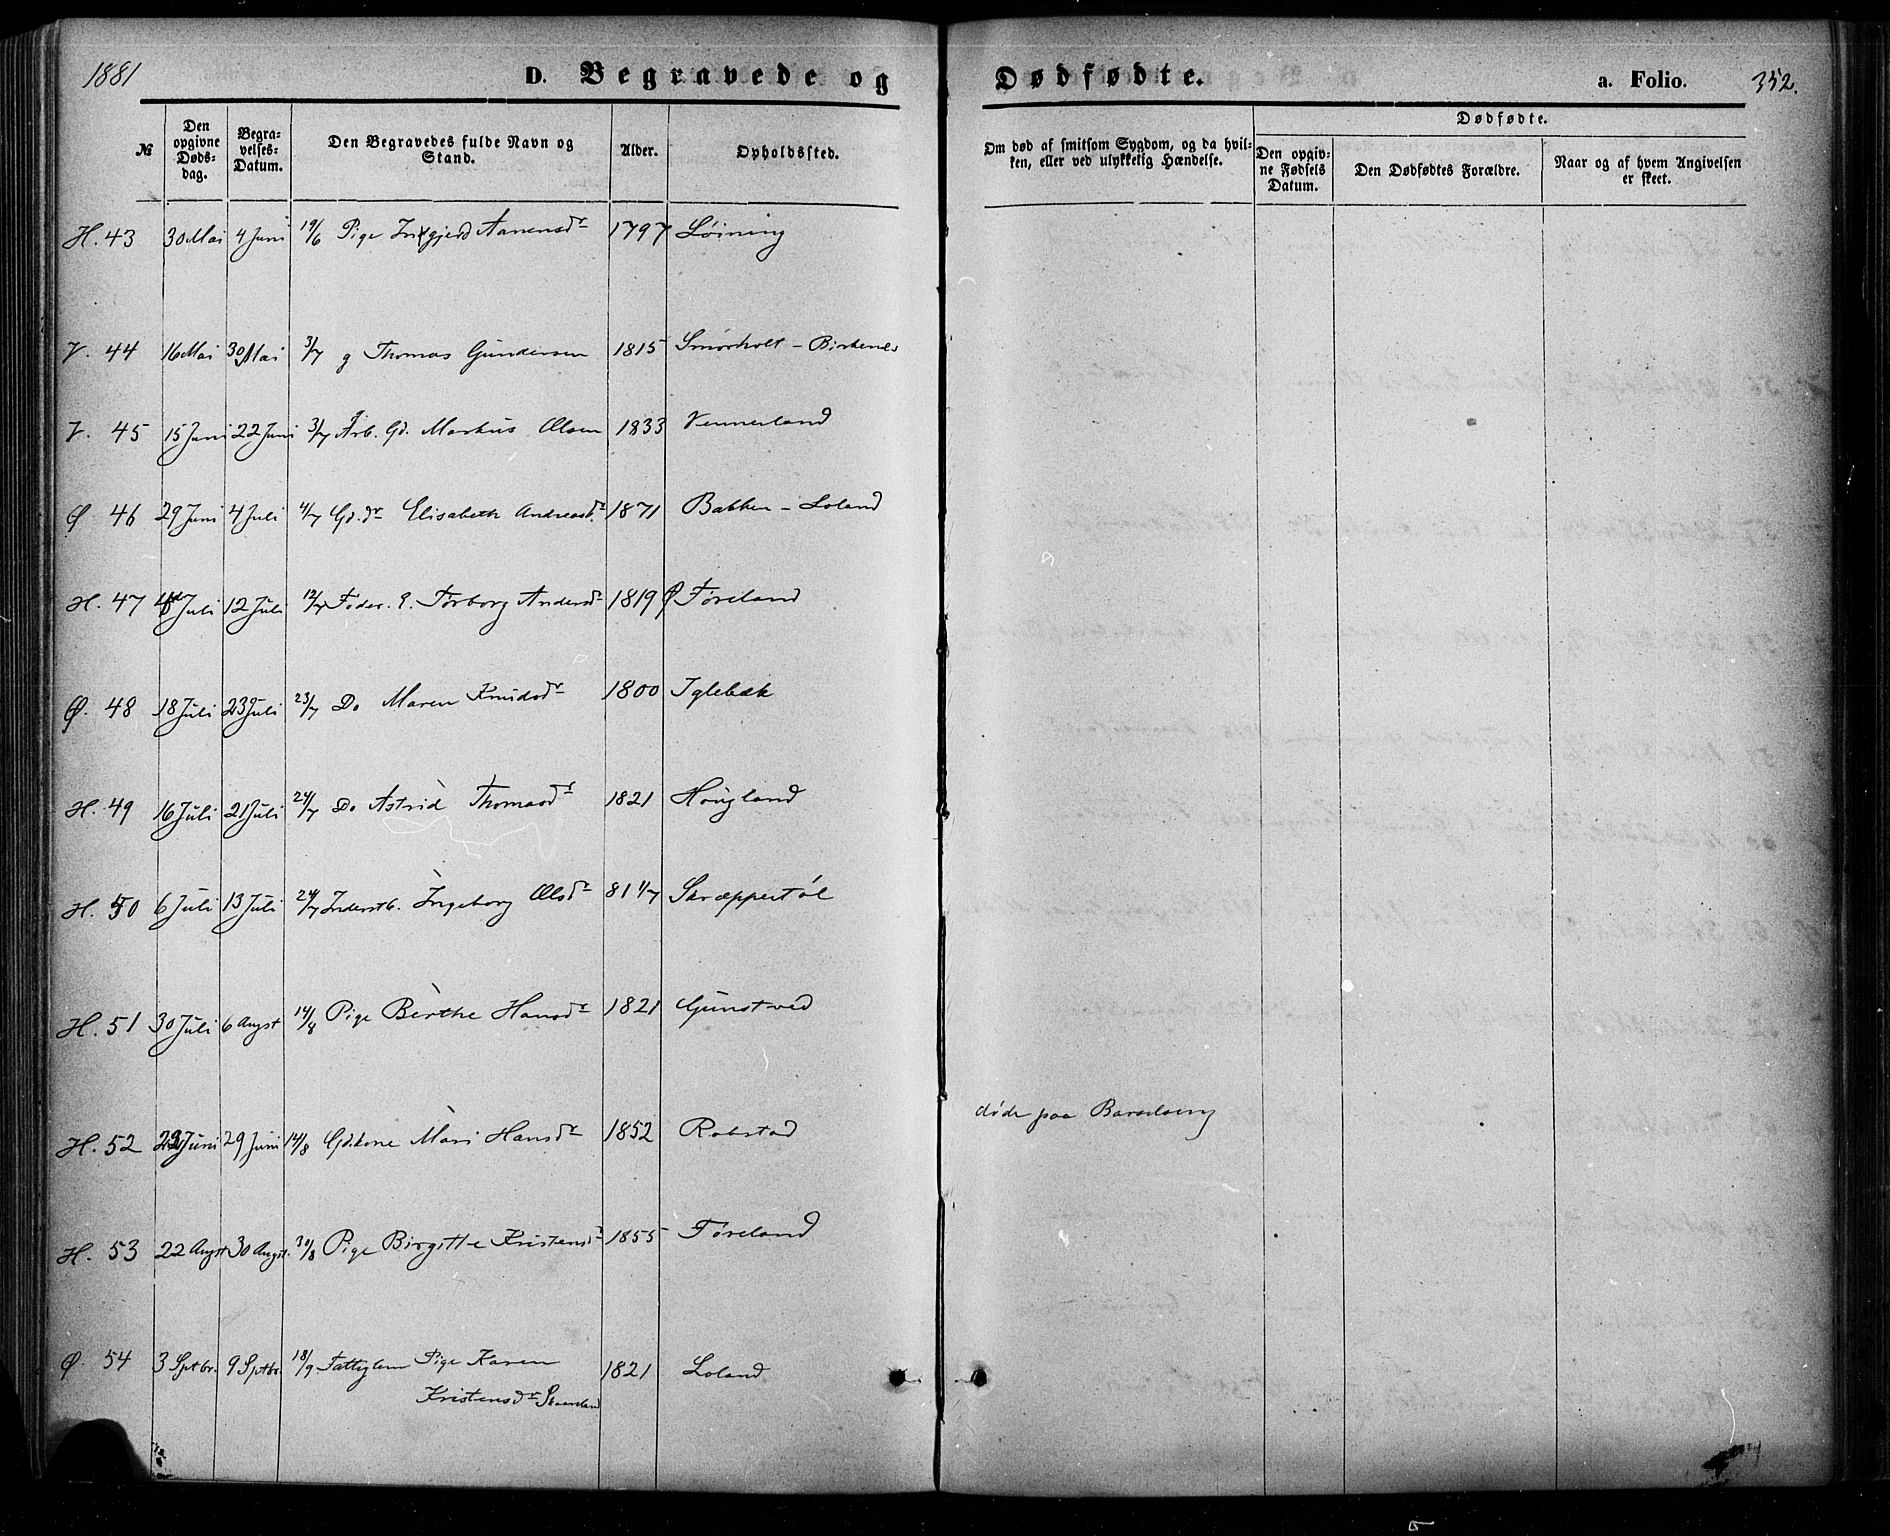 1881
D. Begravede og Dødfødte.
a. Folio. 352.
№
Den opgivne Døds-dag.
Begra-velses-Datum.
Den Begravedes fulde Navn og Stand.
Alder.
Opholdssted.
Om død af smitsom Sygdom, og da hvil-ken, eller ved ulykkelig Hændelse.
Dødfødte.
Den opgiv-ne Fødsels Datum.
Den Dødfødtes Forældre.
Naar og af hvem Angivelsen er skeet.
H. 43 30 Mai 4 Juni 19/6 Pige Ingjerd Aanensdr 1797 Løining
V. 44 16 Mai 30 Mai 3/7 g Thomas Gundersen 1815 Smørholt - Birkenes
V. 45 15 Juni 22 Juni 3/7 Arb. Gd. Markus Olsen 1833 Vennerland
Ø. 46 29 Juni 4 Juli 4/7 Gd.dr Elisabeth Andreasdr 1871 Bakken - Loland
H. 47 Juli 12 Juli 12/7 Føder. E. Tørborg Andersdr 1819 Ø Føreland
Ø. 48 18 Juli 23 Juli 23/7 Do Maren Knudsdr 1800 Iglebæk
H. 49 16 Juli 21 Juli 24/7 Do Astrid Thomasdr 1821 Hougland
H. 50 6 Juli 13 Juli 24/7 Inderstb. Ingeborg Olsdr 81 1/7 Skræppestøl
H. 51 30 Juli 6 Augst 14/8 Pige Berthe Hansdr 1821 Gunstved
H. 52 22 Juni 29 Juni 14/8 Gdkone Mari Hansdr 1852 Robstad døde paa Barselseng
H. 53 22 Augst 30 Augst. 30/8 Pige Birgitte Kristensdr 1855 Føreland
Ø. 54 3 Sptbr. 9 Sptbr. 18/9 Fattiglem Pige Karen 1821 Loland
Kristensdr Skaareland